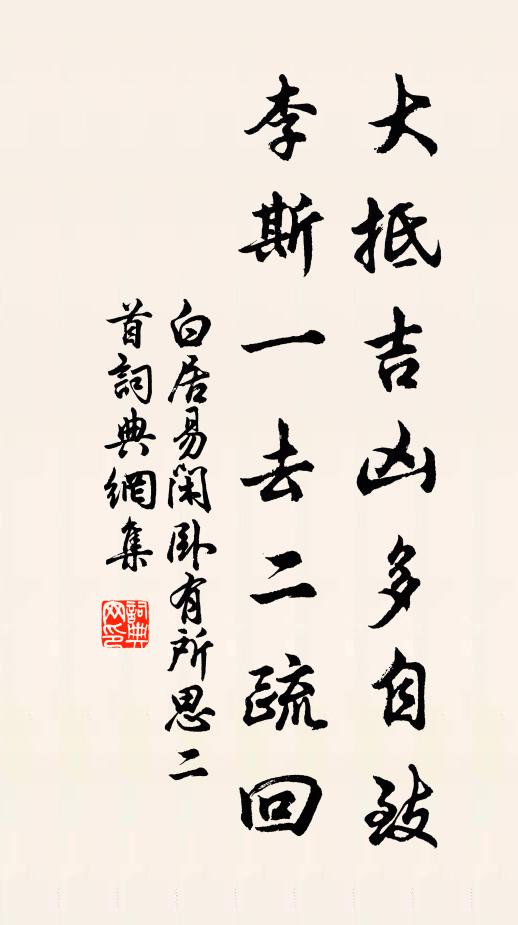 大抵吉凶多自致
李斯一去二疏回
白居易閑臥有所思二
首詞典網集
詞典网印